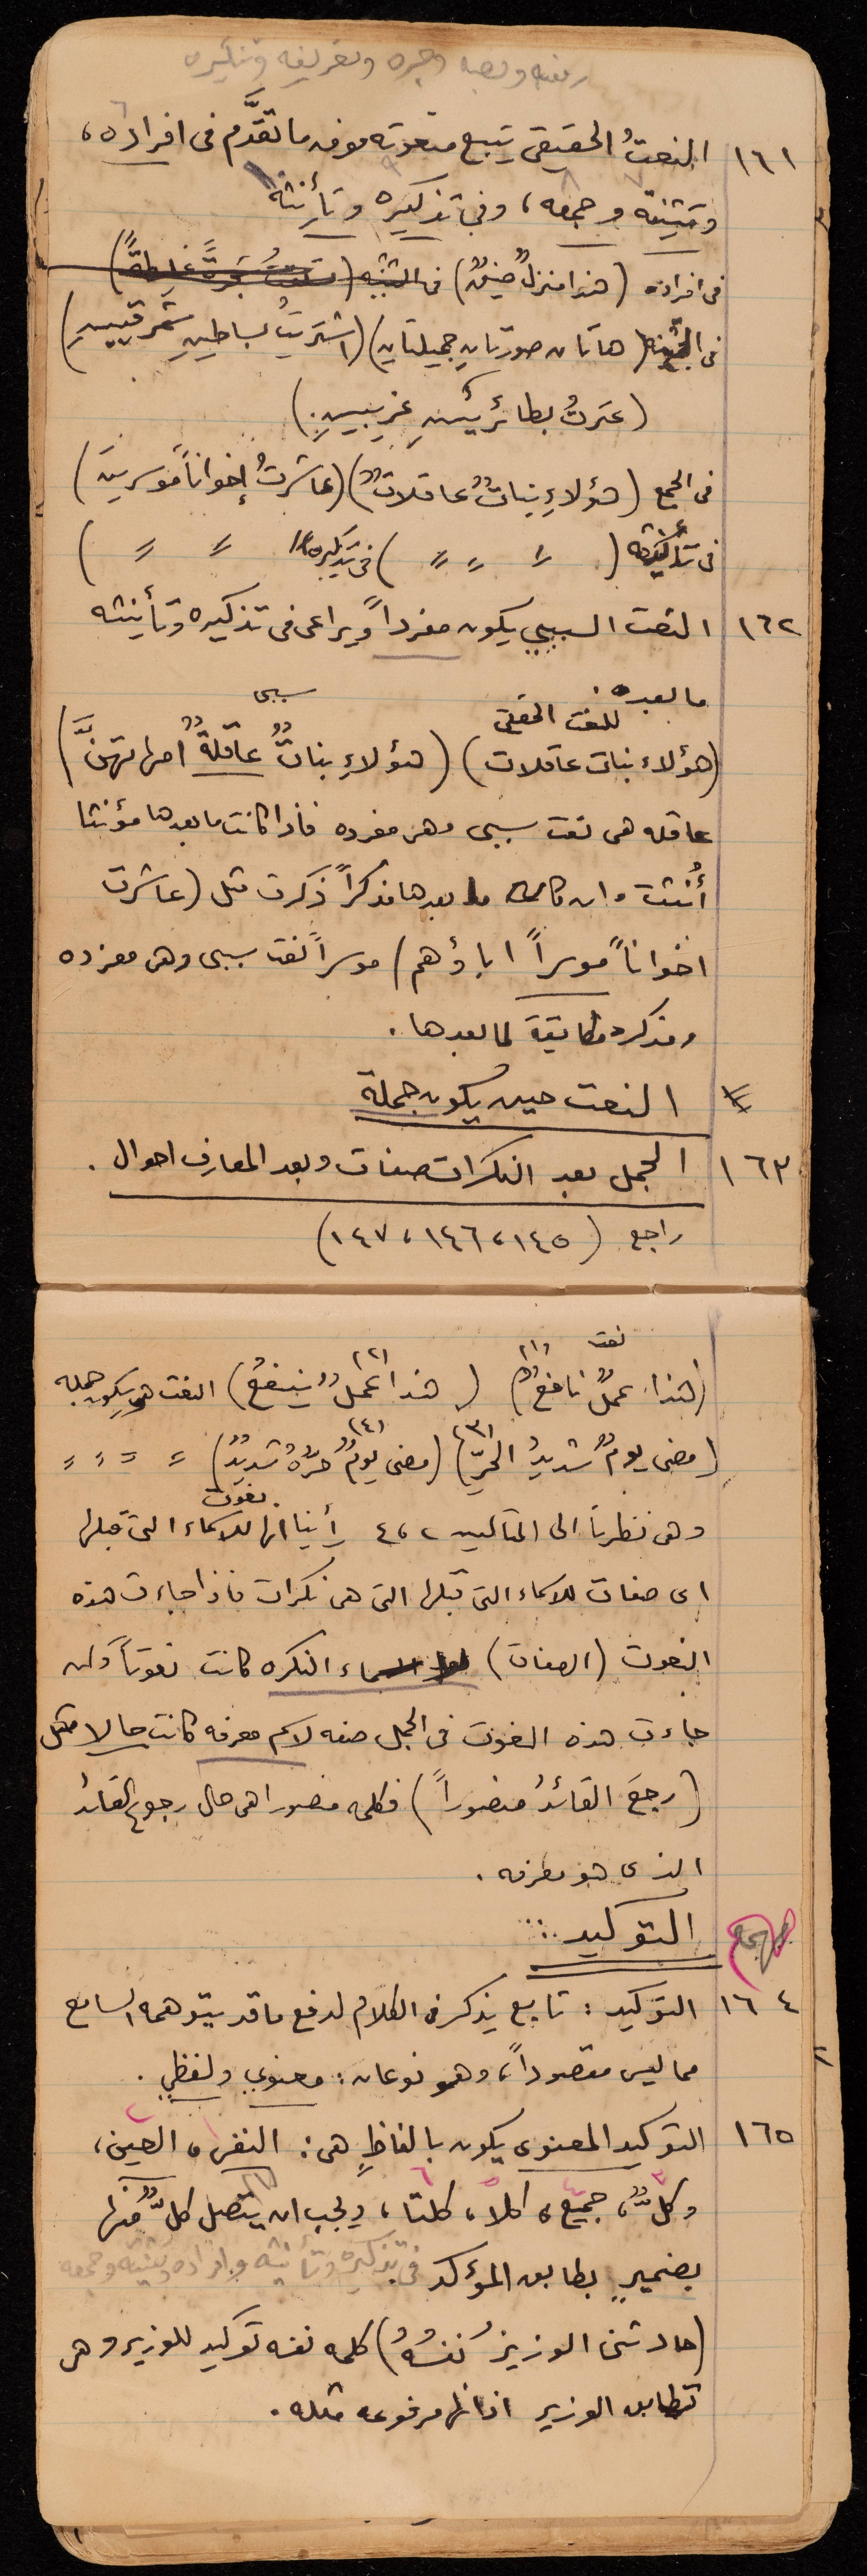 رفعه ونصبه وجره وتعريفه وتنكيره
١٦١ النعتُ الحقيقى يتبع منعوته فوق ما تقدَّم فى افراده،
وتثنيته وجمعه، وفى تذكيره وتأنيثه
فى افراده (هذا منزلٌ ضيقٌ) فى التثنيه (تسلقتُ شجرةً غليظةً)
فى التثنيه (هاتان صورتانِ جميلتانِ) (اشتريتُ بساطينِ شرقيينِ)
(عثرتُ بطائرينِ غريبينِ)
فى الجمع (هؤلاءِ بناتٌ عاقلاتٌ) (عاشرتُ إخواناً موسرينَ)
فى تأنيثه ( " " " ) فى تذكيره ( " " )
١٦٢ النعت السببي يكون مفرداً ويراعى فى تذكيره وتأنيثه
ما بعده.
للنعت الحقيقى سببى
(هؤلاء بنات عاقلات) (هؤلاءِ بناتٌ عاقلةٌ امهاتهنَّ)
عاقله هى نعت سببى وهى مفرده فاذا كانت ما بعدها مؤنثا
أُنثت وان كان ما بعدها مذكراً ذكرت مثل (عاشرت
اخواناً موسراً اباؤهم) موسراً نعت سببى وهى مفرده
ومذكره مطابقة لما بعدها.
النعت حين يكون جملة
١٦٣ الجمل بعد النكرات صفات وبعد المعارف احوال.
راجع (١٤٥، ١٤٦، ١٤٧)
نعت (١) (٢)
(هذا عملٌ نافعٌ) (هذا عملٌ ينفعُ) النعت هو يكون جمله
(٣) (٤)
(مضى يومٌ شديدُ الحرِّ) (مضى يومٌ حرُّهُ شديدٌ) " " " "
وهى نظرنا الى المثالين ٢، ٤ رأينا انها نعوت للاسماء التى قبلها
اى صفات للاسماء التى قبلها التى هى نكرات فاذا جاءت هذه
النعوت (الصفات) لاسماء النكره كانت نعوتاً وان
جاءت هذه النعوت فى الجمل صفه لاسم معرفه كانت حالا مثل
(رجعَ القائدُ منصوراً) فكلمه منصورا هى حال رجوع القائد
الذى هو معرفه.
التوكيد:
١٦٤ التوكيد: تابع يذكر فى الكلام لدفع ما قد يتوهمه السامع
مما ليس مقصوداً، وهو نوعان: معنوي ولفظي.
١٦٥ التوكيد المعنوى يكون بالفاظٍ هى: النفس، العين،
وكلٌّ، جميع، كلا، كلتا، ويجب ان يتصل كلٌّ منها
بضميرٍ يطابق المؤكد فى تذكيره وتأنيثه وافراده وتثنيته وجمعه
(حادثنى الوزيرُ نفسُهُ) كلمه نفسه توكيد للوزير وهى
تطابق الوزير اذ انها مرفوعه مثله.